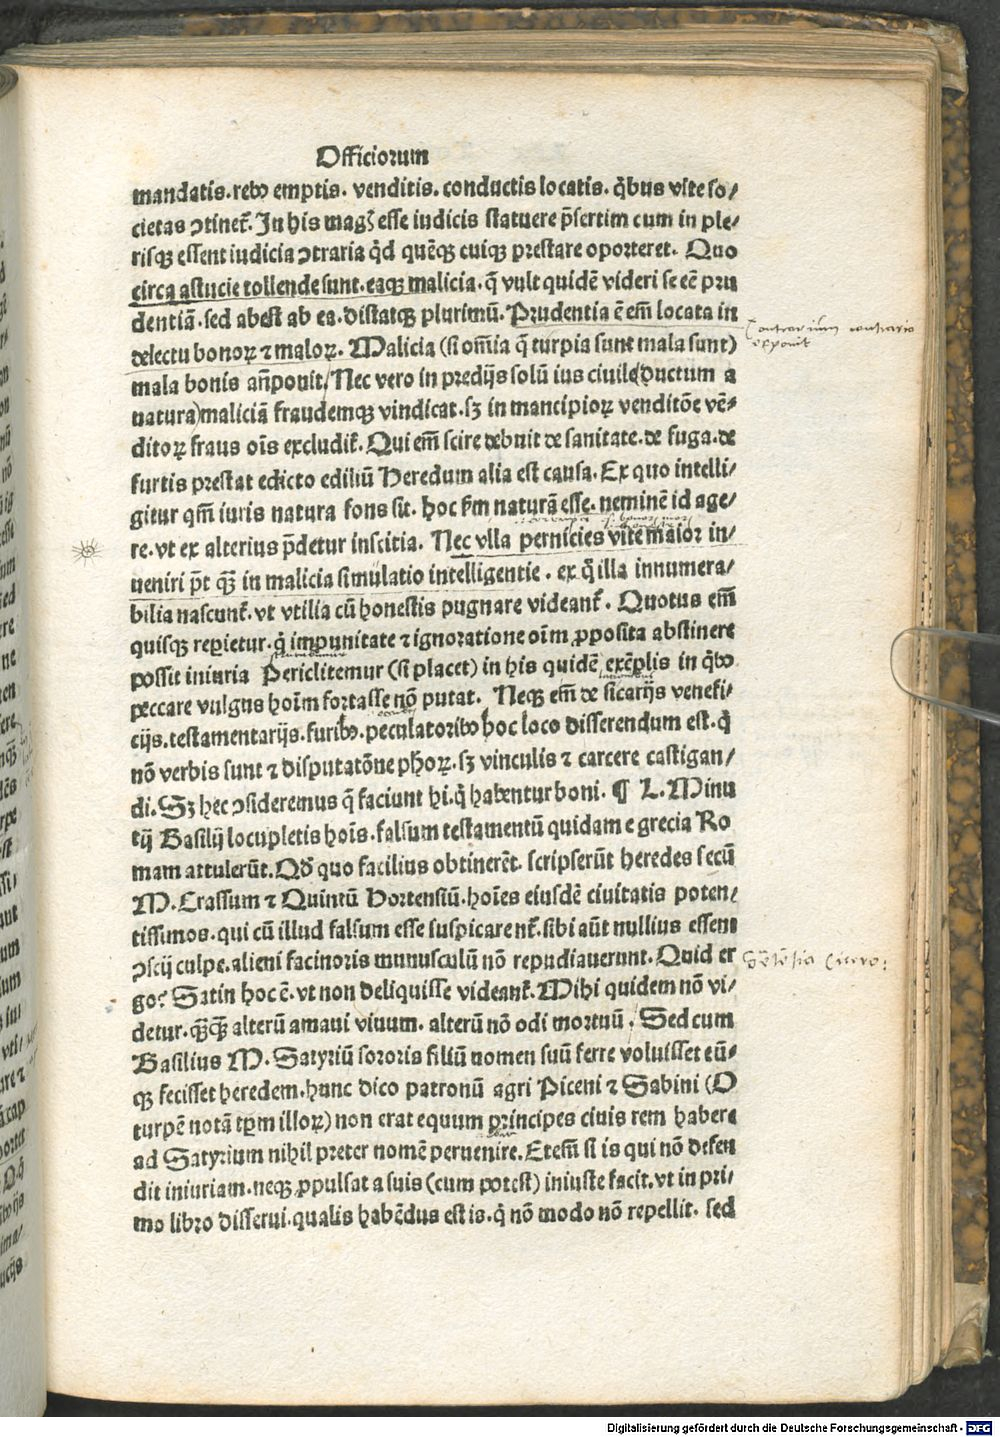 Officiorum
mandatis. rebꝰ emptis. venditis. conductis locatis. q̇bus vite so/
cietas ↄtinet᷑. In his magꝭ esse iudicis statuere p̄sertim cum in ple⸗
risqꝫ essent iudicia ↄtraria q̇d quēqꝫ cuiqꝫ prestare oporteret. Quo
circa astucie tollende sunt. eaqꝫ malicia. q̄ vult quidē videri se eē pru
dentiā. sed abest ab ea. distatqꝫ plurimū. Prudentia ē em̄ locata in
delectu bonoꝝ ⁊ maloꝝ. Malicia (si om̄ia q̄ turpia sunt mala sunt)
mala bonis an̄ponit. Nec vero in predijs solū ius ciuile (ductum a
natura) maliciā fraudemqꝫ vindicat. sꝫ in mancipioꝝ venditōe vē⸗
ditoꝝ fraus oīs excludit᷑. Qui em̄ scire debuit de sanitate. de fuga. de
furtis prestat edicto ediliū Heredum alia est causa. Ex quo intelli/
gitur qm̄ iuris natura fons sit. hoc ẜm naturā esse. neminē id age/
re. vt ex alterius p̄detur inscitia. Nec vlla pernicies vite maior in/
ueniri pt̄ qꝫ̄ in malicia simulatio intelligentie. ex q̇ illa innumera/
bilia nascunt᷑. vt vtilia cū honestis pugnare videant᷑. Quotus em̄
quisqꝫ repietur. q̇ impunitate ⁊ ignoratione oīm ꝓposita abstinere
possit iniuria Periclitemur (si placet) in his quidē exēplis in q̇bꝰ
peccare vulgus hoīm fortasse nō putat. Neqꝫ em̄ de sicarijs venefi/
cijs. testamentarijs. furibꝰ. peculatoribꝰ hoc loco disserendum est. q̇
nō verbis sunt ⁊ disputatōne phoꝝ. sꝫ vinculis ⁊ carcere castigan/
di. Sꝫ hec ↄsideremus q̄ faciunt hi. q̇ habentur boni. ¶ L. Minu
tij Basilij locupletis hoīs. falsum testamentū quidam e grecia Ro
mam attulerūt. Qd̄ quo facilius obtinerēt. scripserūt heredes secū
M. Crassum ⁊ Quintū Hortensiū. hoīes eiusdē ciuitatis poten/
tissimos. qui cū illud falsum esse suspicarent᷑. sibi aūt nullius essent
ↄscij culpe. alieni facinoris munusculū nō repudiauerunt. Quid er
go? Satin hoc ē. vt non deliquisse videant᷑. Mihi quidem nō vi/
detur. qꝫ̄qꝫ̄ alterū amaui viuum. alterū nō odi mortuū. Sed cum
Basilius M. Satyriū sororis filiū nomen suū ferre voluisset eū⸗
qꝫ fecisset heredem. hunc dico patronū agri Piceni ⁊ Sabini (O
turpē notā tꝑm illoꝝ) non erat equum principes ciuis rem habere
ad Satyrium nihil preter nomē peruenire. Etem̄ si is qui nō defen
dit iniuriam. neqꝫ ꝓpulsat a suis (cum potest) iniuste facit. vt in pri/
mo libro disserui. qualis habēdus est is. q̇ nō modo nō repellit. sed
Contrarium contrario
exponit
Sētētia Cicero:
Digitalisierung gefördert durch die Deutsche Forschungsgemeinschaft - DFG